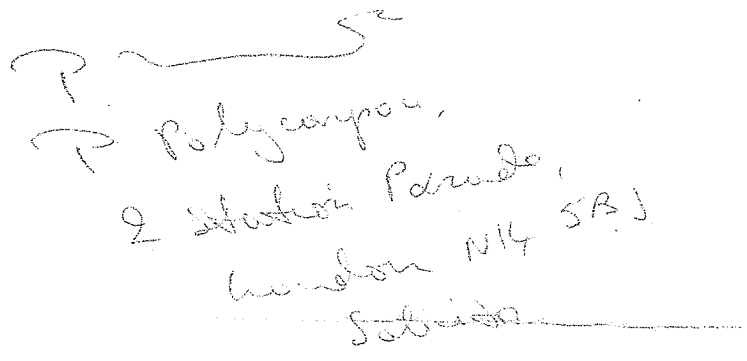 P Polycarpou,
2 Station Parade,
London N14 5BJ
Solicitor